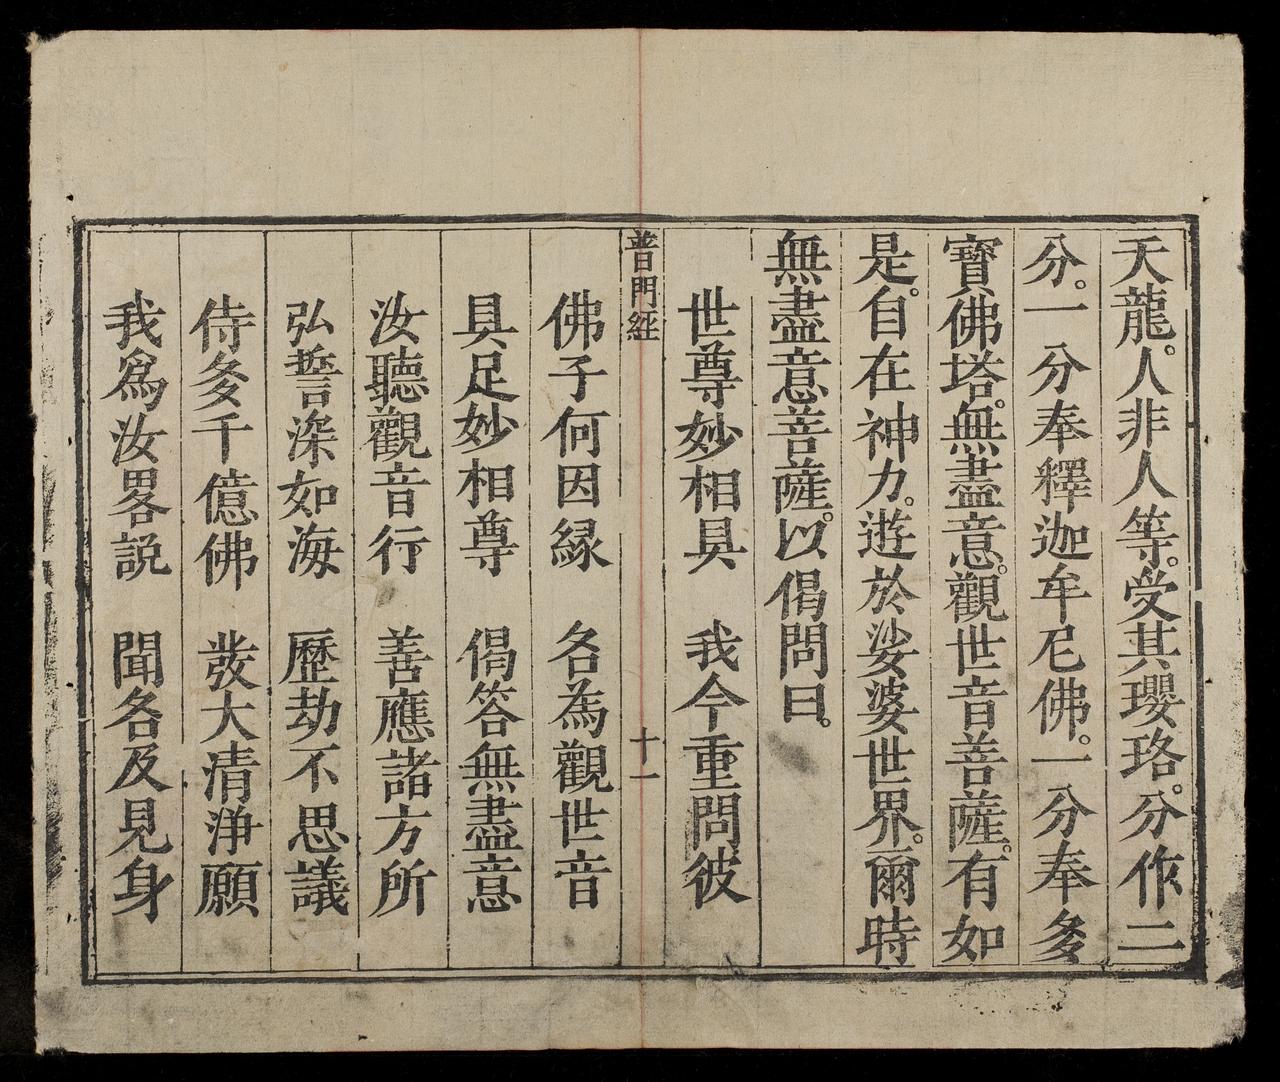 天龍。人非人等。受其瓔珞。分作二
分。一分奉釋迦牟尼佛。一分奉多
寶佛塔。無盡意。觀世音菩薩。有如
是。自在神力。遊於娑婆世界。爾時
無盡意菩薩。以偈問曰。
世尊妙相具　我今重問彼
普門経　十一
佛子何因縁　各為觀世音
具足妙相尊　偈答無盡意
汝聽觀音行　善應諸方所
弘誓深如海　歷劫不思議
侍多千億佛　發大清淨願
我爲汝畧説　聞各及見身